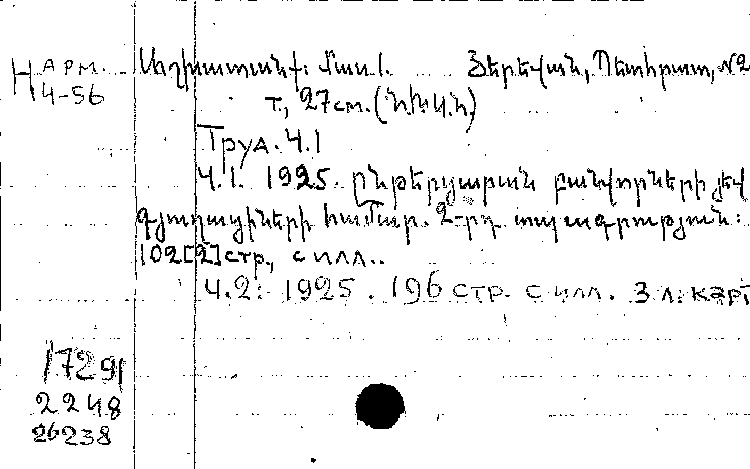 H АРМ. Աշխատանք. Մաս I. Յերեվան, Պետհրատ, №2
4-56 т, 27см. (Ն.Խ.Կ.Ն)
Труд. Ч.1
Ч.1. 1925. ընթերցարան բանվորների յեվ
գյուղացիների համար. 2-րդ տպագրություն:
102[2]стр., с илл..
Ч.2: 1925. 196 стр. с илл. 3 л. карт
17291
2248
26238